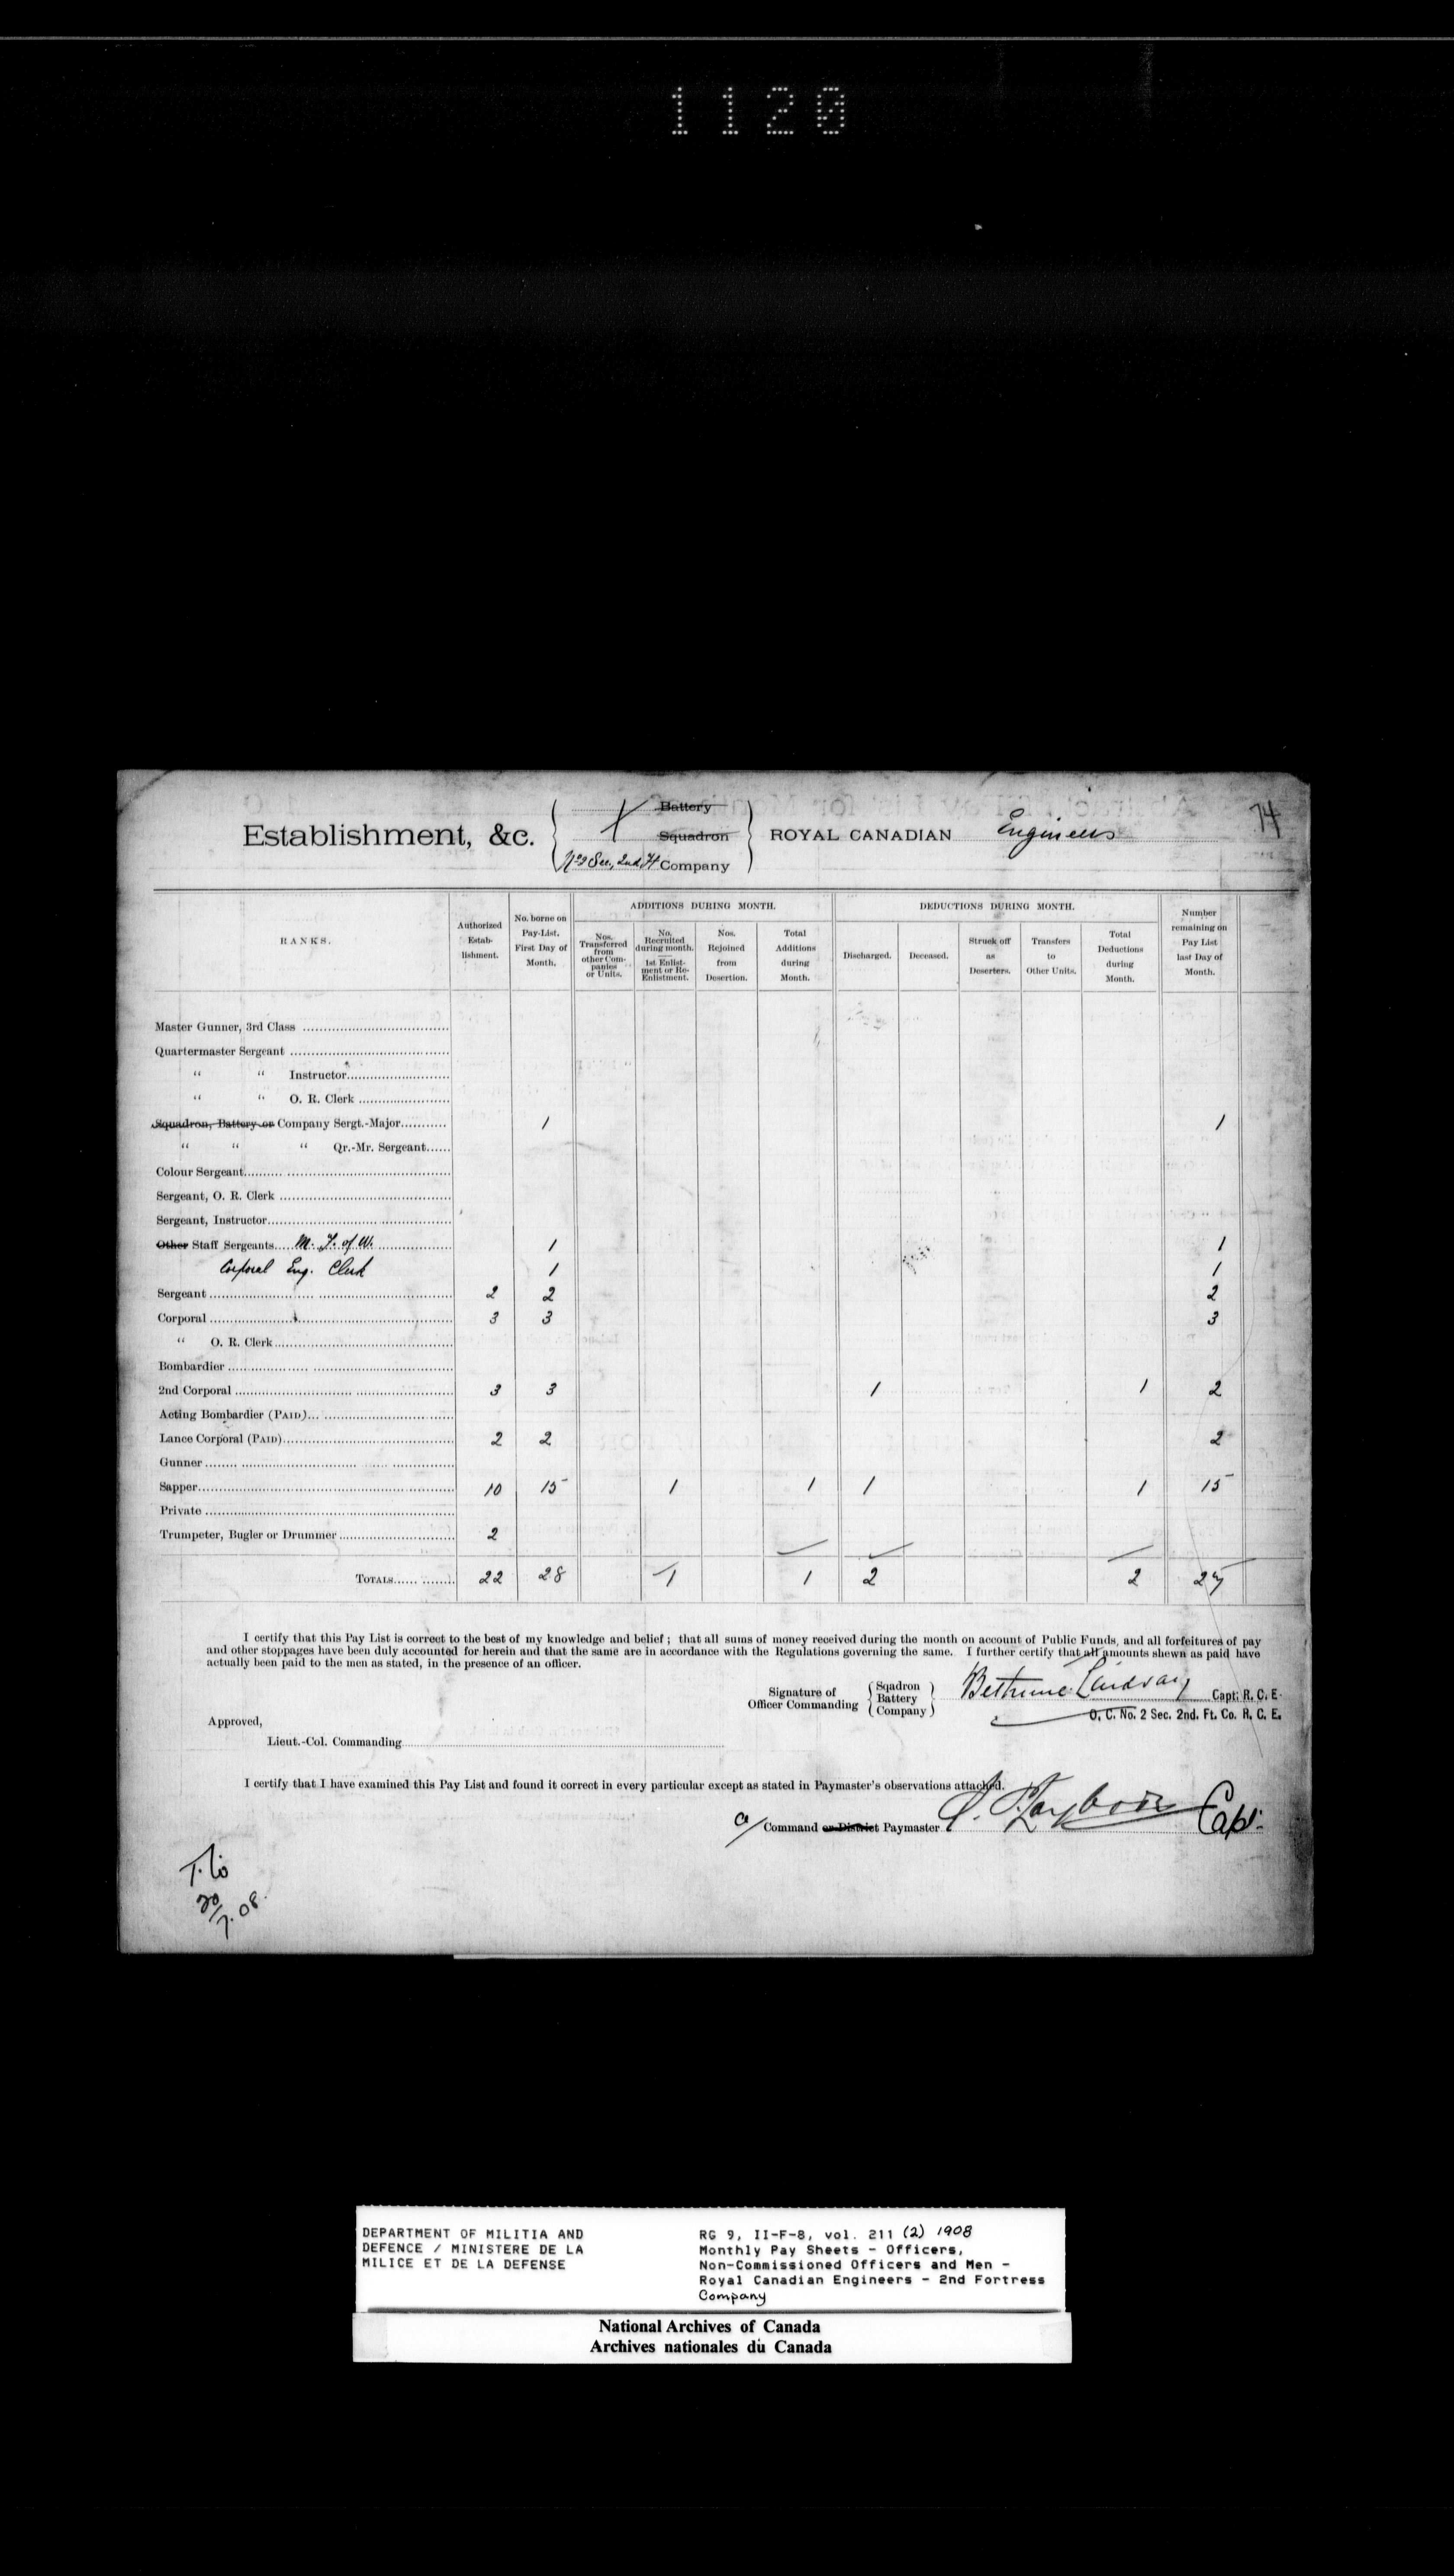 1120
74
Establishment, &c. Battery
Squadron
No 2 Sec., 2nd Ft Company
ROYAL CANADIAN Engineers
RANKS.
Authorized Estab-lishment.
No. borne on Pay-List. First Day of Month.
ADDITIONS DURING MONTH.
Nos. Transferred from other Com-panies or Units.
No. Recruited during month. 1st Enlist-ment or Re-Enlistment.
Nos. Rejoined from Desertion.
Total Additions during Month.
DEDUCTIONS DURING MONTH.
Discharged.
Deceased.
Struck off as Deserters.
Transfers to Other Units.
Total Deductions during Month.
Number remaining on Pay List last Day of Month.
Master Gunner, 3rd Class
Quartermaster Sergeant
" " Instructor
" " O. R. Clerk
Squadron, Battery or Company Sergt.-Major 1 1
" " " Qr.-Mr. Sergeant
Colour Sergeant
Sergeant, O. R. Clerk
Sergeant, Instructor
Other Staff Sergeants M. F. of W. 1 1
Corporal Eng. Clerk 1 1
Sergeant 2 2 2
Corporal 3 3 3
" O. R. Clerk
Bombardier
2nd Corporal 3 3 1 1 2
Acting Bombardier (PAID)
Lance Corporal (PAID) 2 2 2
Gunner
Sapper 10 15 1 1 1 1 15
Private
Trumpeter, Bugler or Drummer 2
TOTALS 22 28 1 1 2 2 27
I certify that this Pay List is correct to the best of my knowledge and belief; that all sums of money received during the month on account of Public Funds, and all forfeitures of pay
and other stoppages have been duly accounted for herein and that the same are in accordance with the Regulations governing the same. I further certify that all amounts shewn as paid have
actually been paid to the men as stated, in the presence of an officer.
Signature of Officer Commanding Sqadron Battery Company Bethune Lindsay Capt: R. C. E.
O. C. No. 2 Sec. 2nd. Ft. Co. R. C. E.
Approved,
Lieut.-Col. Commanding
I certify that I have examined this Pay List and found it correct in every particular except as stated in Paymaster's observations attached.
a/ Command or District Paymaster Capt.
20/7.08.
DEPARTMENT OF MILITIA AND
DEFENCE / MINISTERE DE LA
MILICE ET DE LA DEFENSE
RG 9, II-F-8, vol. 211 (2) 1908
Monthly Pay Sheets - Officers,
Non-Commissioned Officers and Men -
Royal Canadian Engineers - 2nd Fortress
Company
National Archives of Canada
Archives nationales du Canada